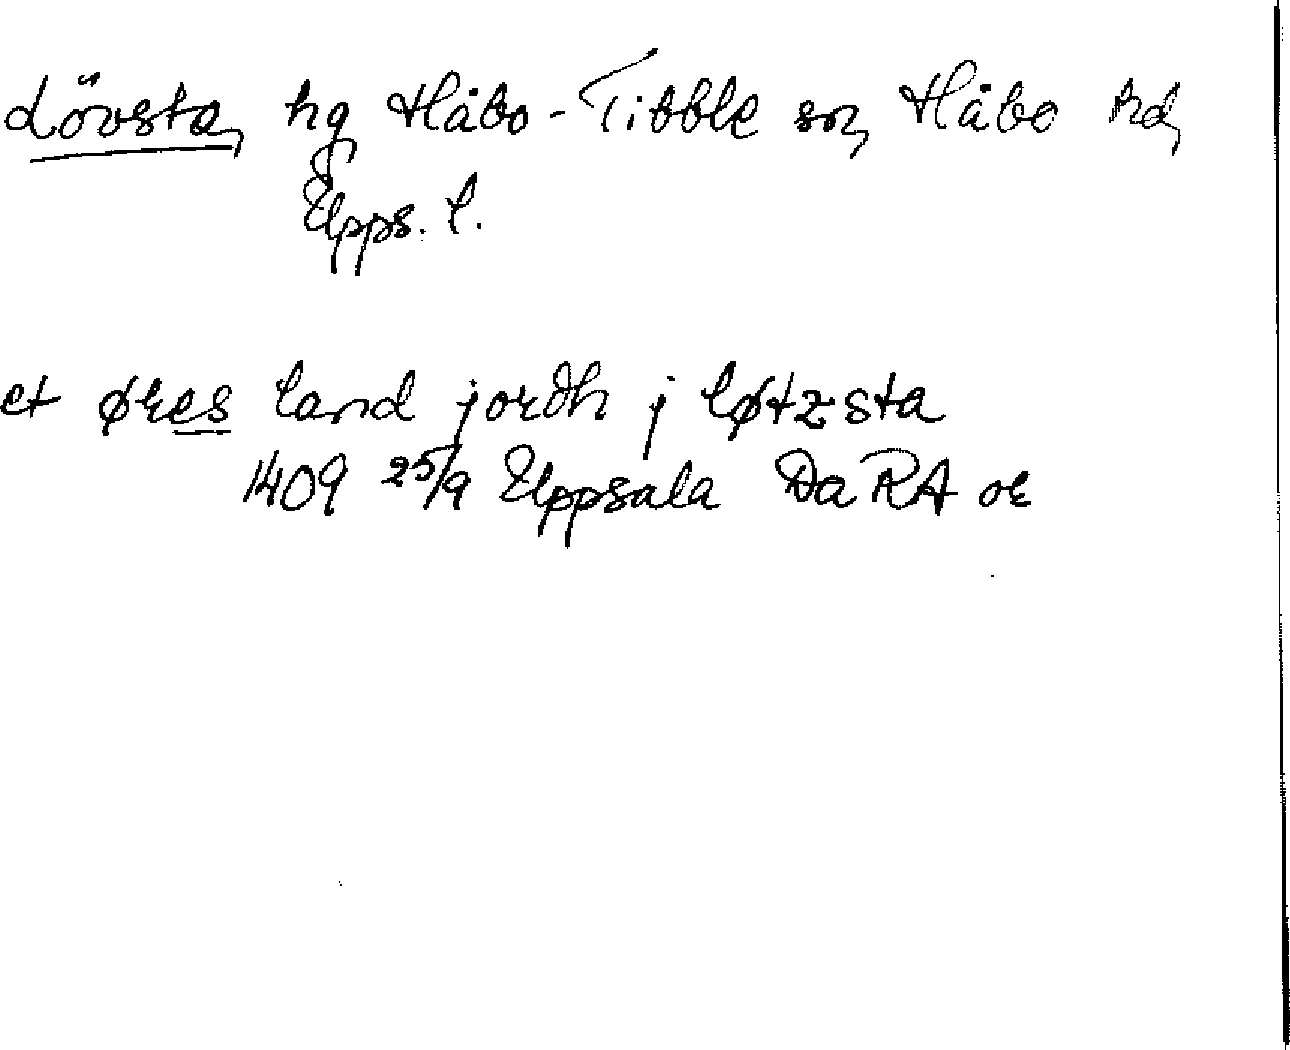 Lövsta, hg, Håbo-Tibble sn, Håbo hd,
Upps. l.
et øres land jordh j løtzsta
1409 25/9 Uppsala DaRA or